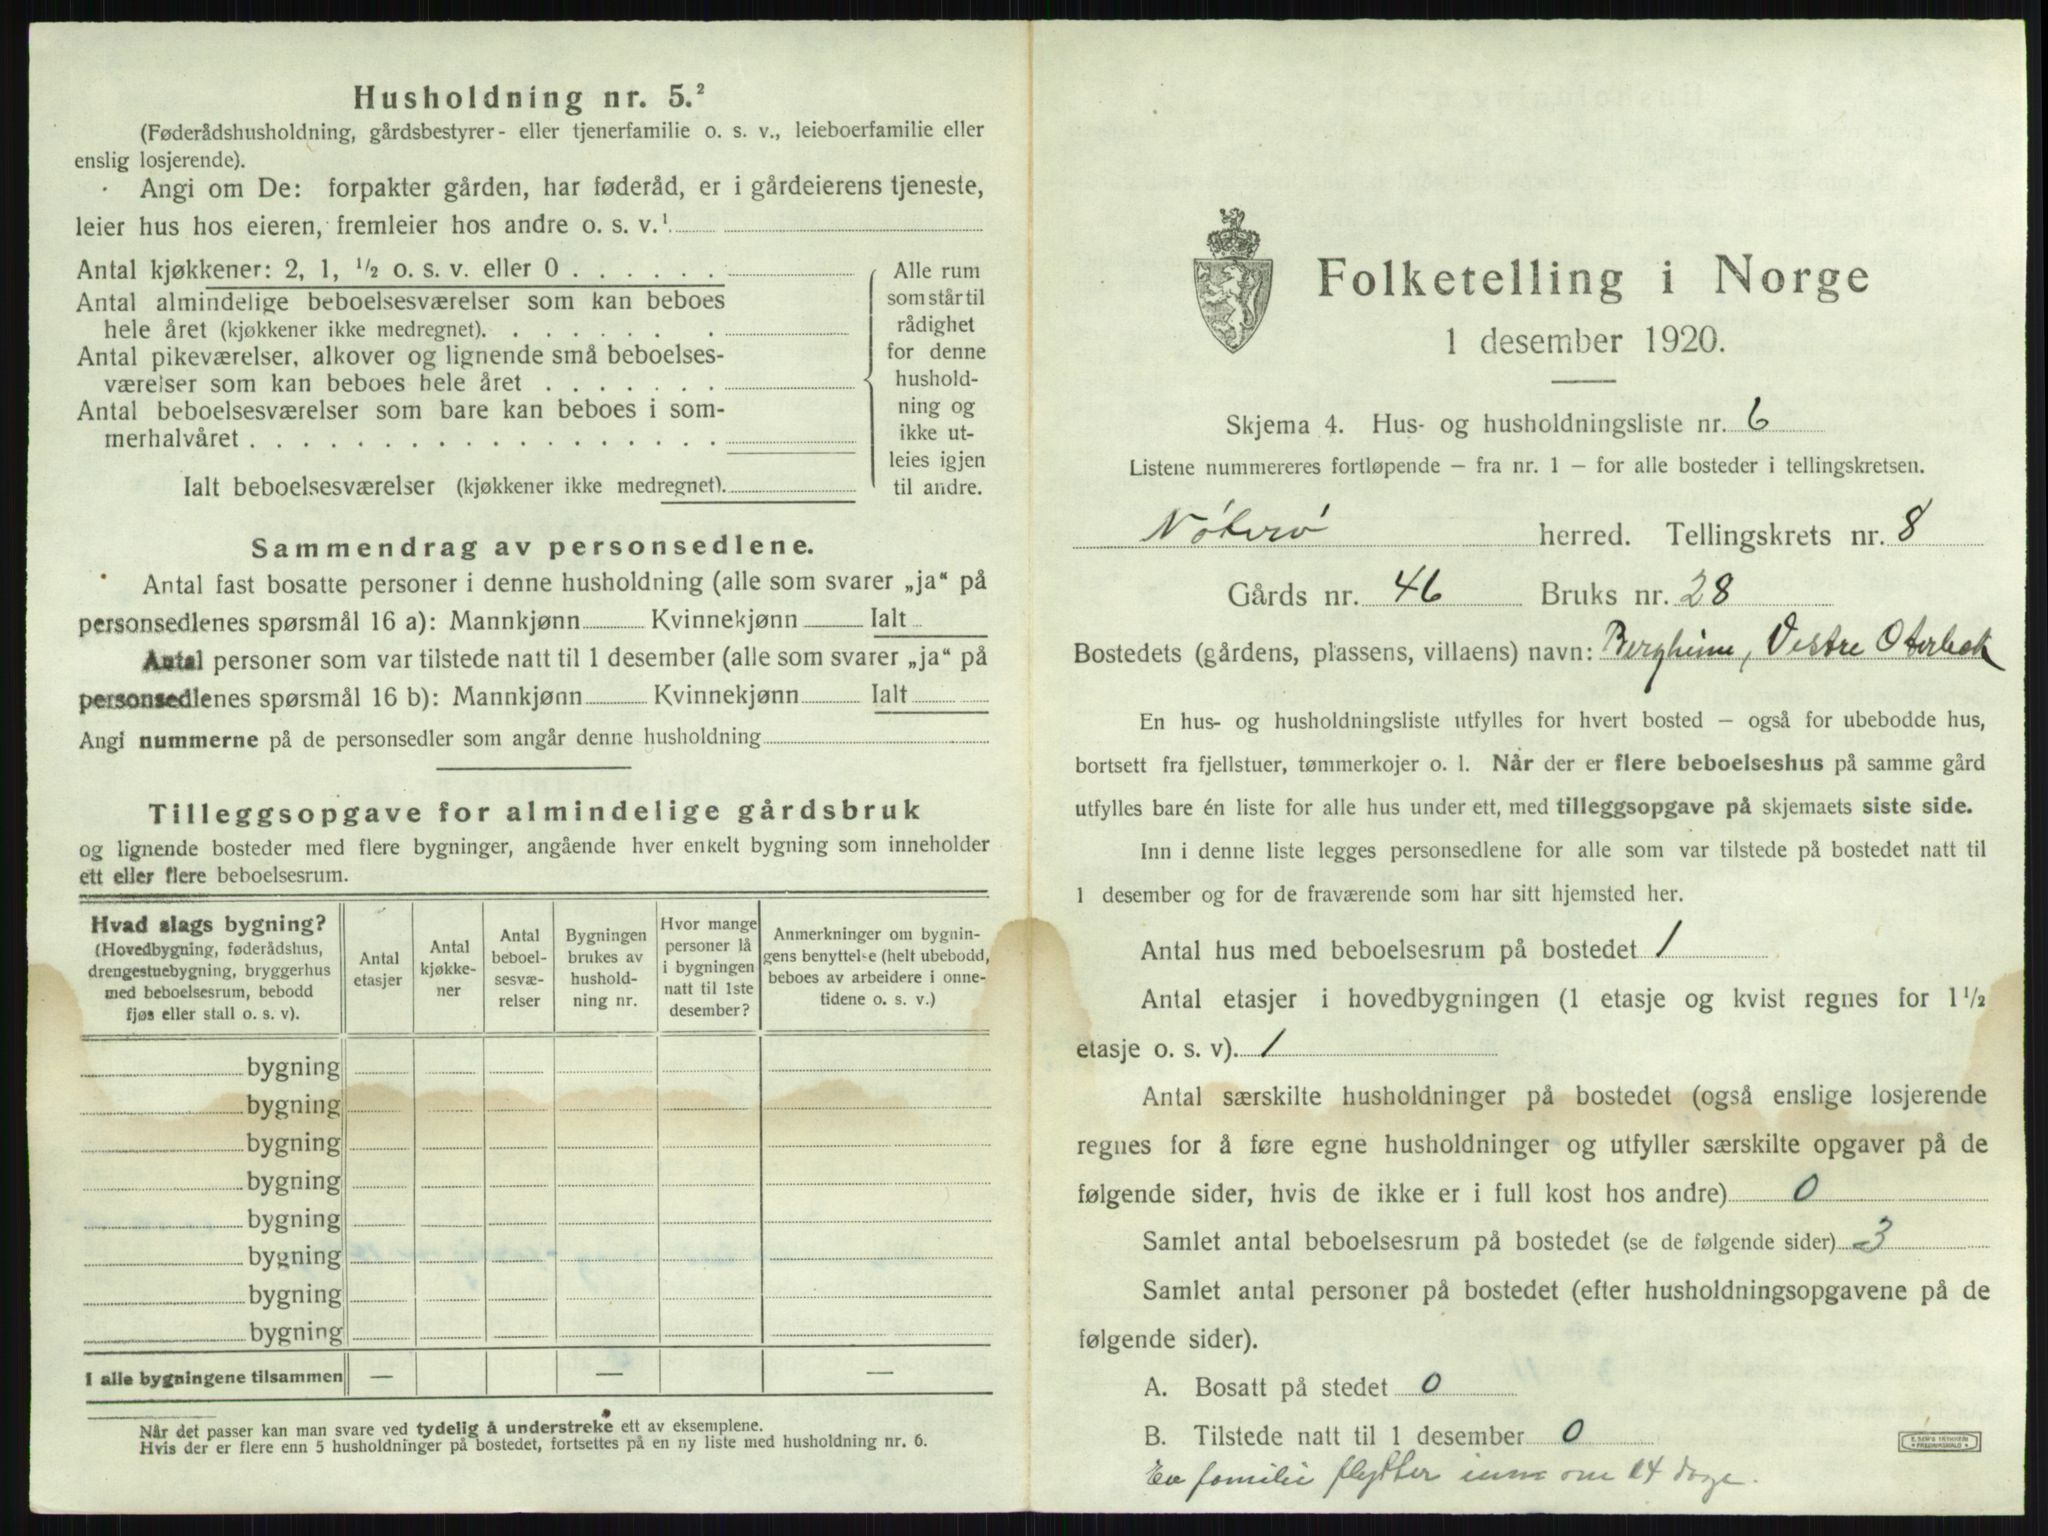 Husholdning nr. 5.²
(Føderådshusholdning, gårdsbestyrer- eller tjenerfamilie o. s. v., leieboerfamilie eller
enslig losjerende).
Angi om De: forpakter gården, har føderåd, er i gårdeierens tjeneste,
leier hus hos eieren, fremleier hos andre o. s. v.¹
Antal kjøkkener: 2, 1, ½ o. s. v. eller 0
Antal almindelige beboelsesværelser som kan beboes
hele året (kjøkkener ikke medregnet).
Antal pikeværelser, alkover og lignende små beboelses-
værelser som kan beboes hele året
Antal beboelsesværelser som bare kan beboes i som-
merhalvåret
Ialt beboelsesværelser (kjøkkener ikke medregnet).
Alle rum
som står til
rådighet
for denne
hushold-
ning og
ikke ut-
leies igjen
til andre.
Sammendrag av personsedlene.
Antal fast bosatte personer i denne husholdning (alle som svarer „ja“ på
personsedlenes spørsmål 16 a): Mannkjønn Kvinnekjønn Ialt
Antal personer som var tilstede natt til 1 desember (alle som svarer „ja“ på
personsedlenes spørsmål 16 b): Mannkjønn Kvinnekjønn Ialt
Angi nummerne på de personsedler som angår denne husholdning
Tilleggsopgave for almindelige gårdsbruk
og lignende bosteder med flere bygninger, angående hver enkelt bygning som inneholder
ett eller flere beboelsesrum.
Hvad slags bygning?
(Hovedbygning, føderådshus,
drengestuebygning, bryggerhus
med beboelsesrum, bebodd
fjøs eller stall o. s. v).
Antal
etasjer
Antal
kjøkke-
ner
Antal
beboel-
sesvæ-
relser
Bygningen
brukes av
hushold-
ning nr.
Hvor mange
personer lå
i bygningen
natt til 1ste
desember?
Anmerkninger om bygnin-
gens benyttelse (helt ubebodd,
beboes av arbeidere i onne-
tidene o. s. v.)
bygning
bygning
bygning
bygning
bygning
bygning
bygning
bygning
I alle bygningene tilsammen — — —
Når det passer kan man svare ved tydelig å understreke ett av eksemplene.
Hvis der er flere enn 5 husholdninger på bostedet, fortsettes på en ny liste med husholdning nr. 6.
Folketelling i Norge
1 desember 1920.
Skjema 4. Hus- og husholdningsliste nr. 6
Listene nummereres fortløpende – fra nr. 1 – for alle bosteder i tellingskretsen.
Nøterø herred. Tellingskrets nr. 8
Gårds nr. 46 Bruks nr. 28
Bostedets (gårdens, plassens, villaens) navn: Bergheim, Vestre Oterbek
En hus- og husholdningsliste utfylles for hvert bosted – også for ubebodde hus,
bortsett fra fjellstuer, tømmerkojer o. l. Når der er flere beboelseshus på samme gård
utfylles bare én liste for alle hus under ett, med tilleggsopgave på skjemaets siste side.
Inn i denne liste legges personsedlene for alle som var tilstede på bostedet natt til
1 desember og for de fraværende som har sitt hjemsted her.
Antal hus med beboelsesrum på bostedet 1
Antal etasjer i hovedbygningen (1 etasje og kvist regnes for 1½
etasje o. s. v). 1
Antal særskilte husholdninger på bostedet (også enslige losjerende
regnes for å føre egne husholdninger og utfyller særskilte opgaver på de
følgende sider, hvis de ikke er i full kost hos andre) 0
Samlet antal beboelsesrum på bostedet (se de følgende sider) 3
Samlet antal personer på bostedet (efter husholdningsopgavene på de
følgende sider).
A. Bosatt på stedet 0
B. Tilstede natt til 1 desember 0
En familie flytter inn om 14 dage.